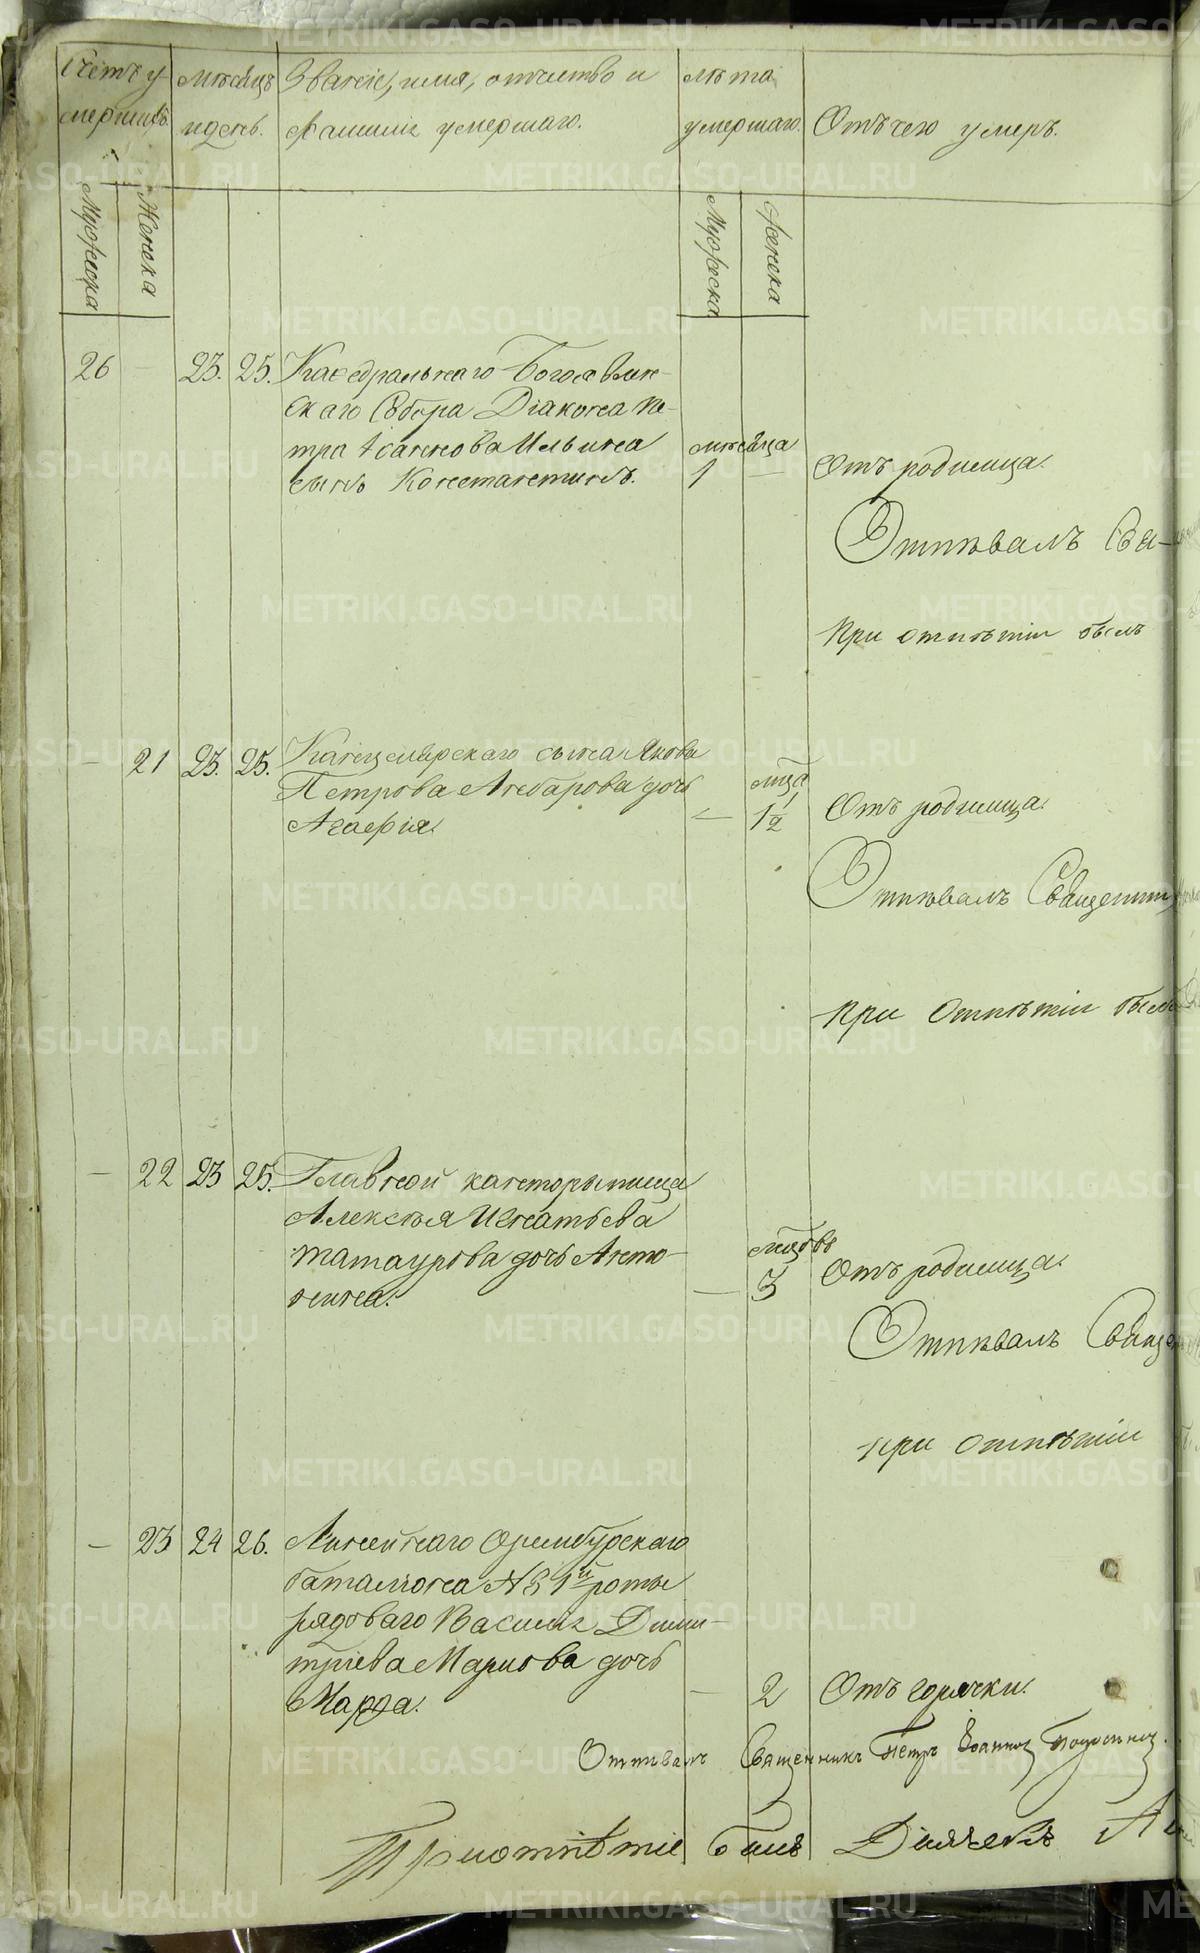 Счетъ у-
мершихъ.
Мѣсяцъ
и день.
Званіе, имя, отчество и
фамилія умершаго.
лѣта
умершаго.
Отъ чего умеръ.
Мужеска
Женска
Мужеска
Женска
26 — 23. 25. Каѳедральнаго Богоявлен-
скаго Собора Діакона Пе-
тра Іоаннова Ильина
сынъ Константинъ.
мѣсяца
1 — Отъ родимца.
Отпѣвалъ Свя-
При отпѣтіи былъ
— 21 23. 25. Канцелярскаго сына Якова
Петрова Анбарова дочь
Агафія.
мца
— 1 1/2 Отъ родимца.
Отпѣвалъ Священни
при Отпѣтіи былъ
— 22 23 25. Главной конторы писца
Алексѣя Игнатьева
Татаурова дочь Анто-
нина.
мцовъ
— 3 Отъ родимца.
Отпѣвалъ Священ
при отпѣтіи
— 23 24 26. Линейнаго Оренбурскаго
баталіона №8 1й роты
рядоваго Василія Дими-
тріева Маркова дочь
Марѳа.
— 2 Отъ горячки.
Отпѣвалъ Священникъ Петръ Іоанновъ
При отпѣтіе былъ Дьячекъ А
METRIKI.GASO-URAL.RU